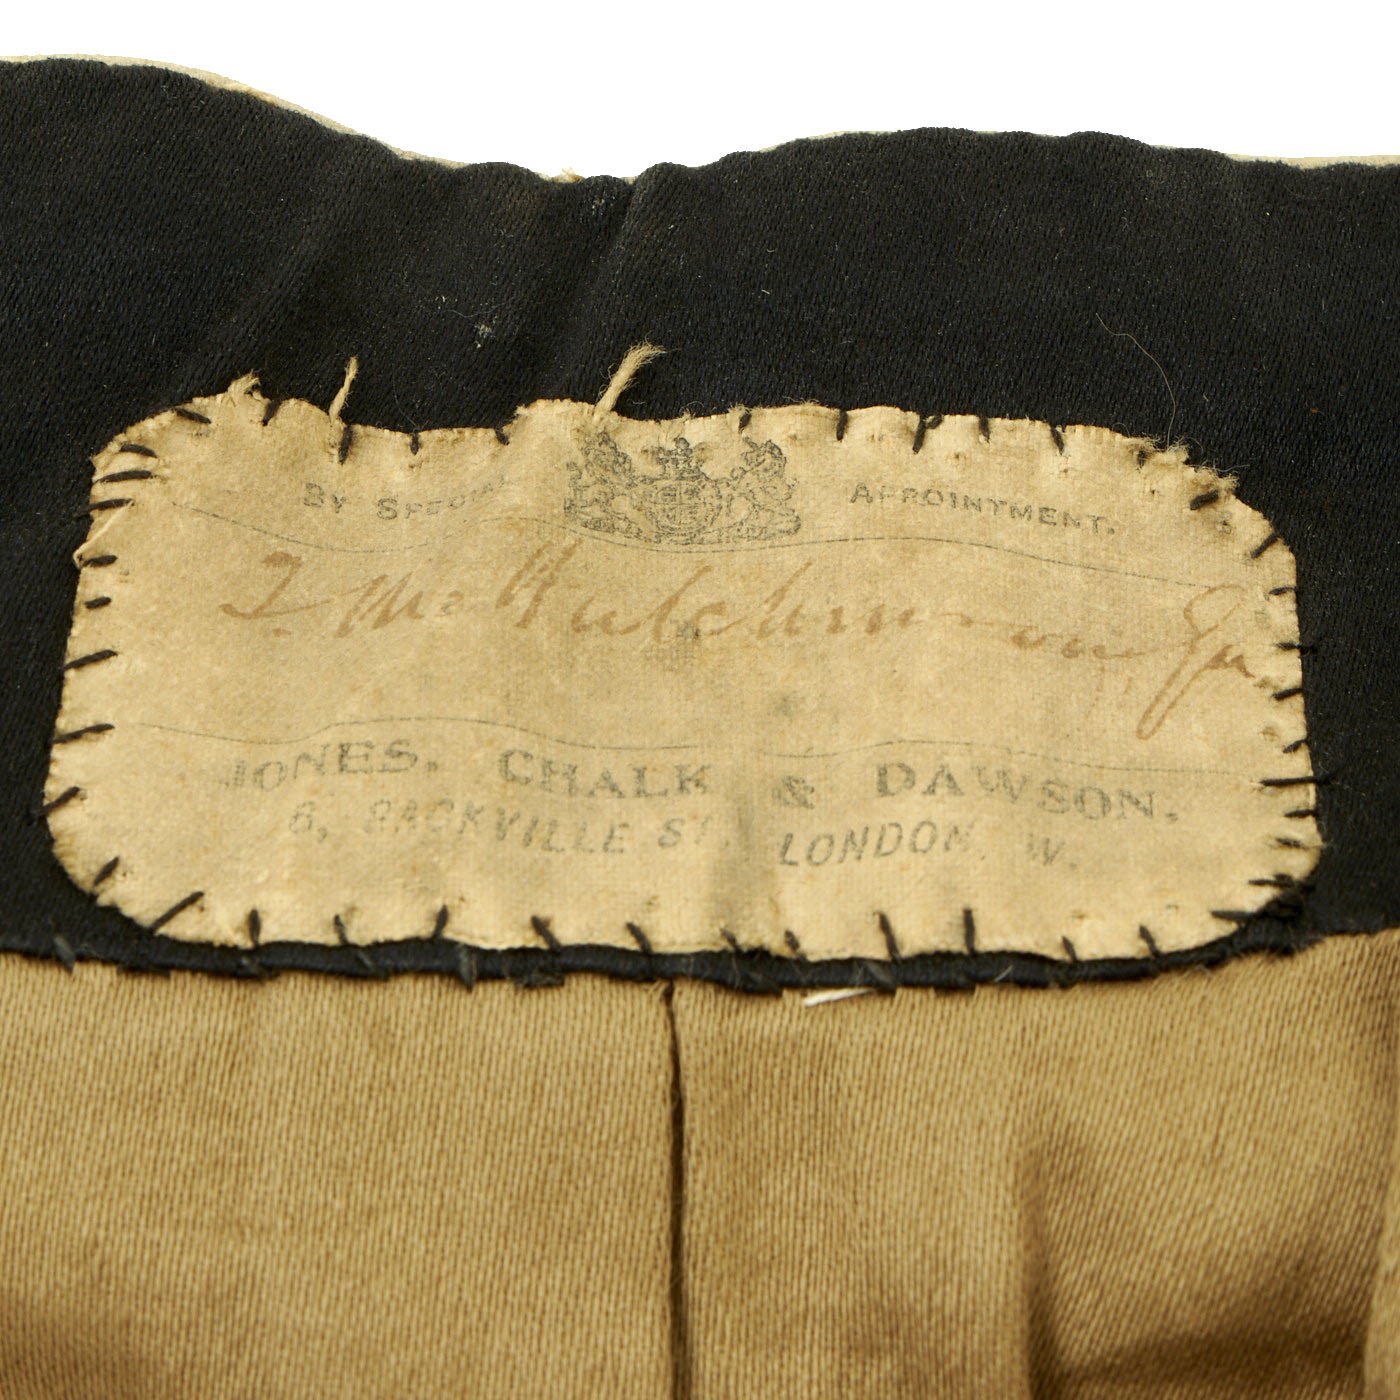 BY SPECIAL APPOINTMENT.
T. Mc Hutchinson Esq
JONES, CHALK & DAWSON.
6, SACKVILLE ST. LONDON, W.